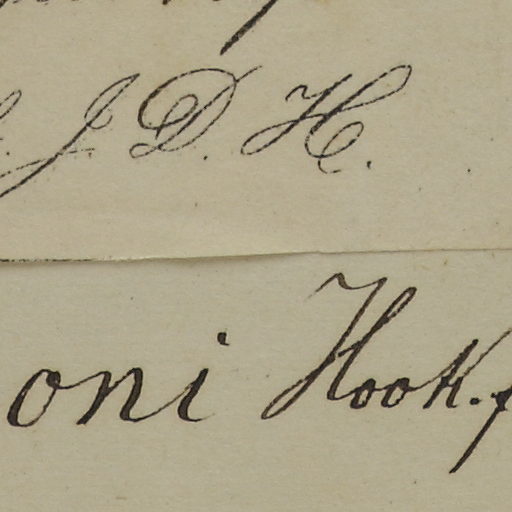 J. D. H.
oni Hook. f